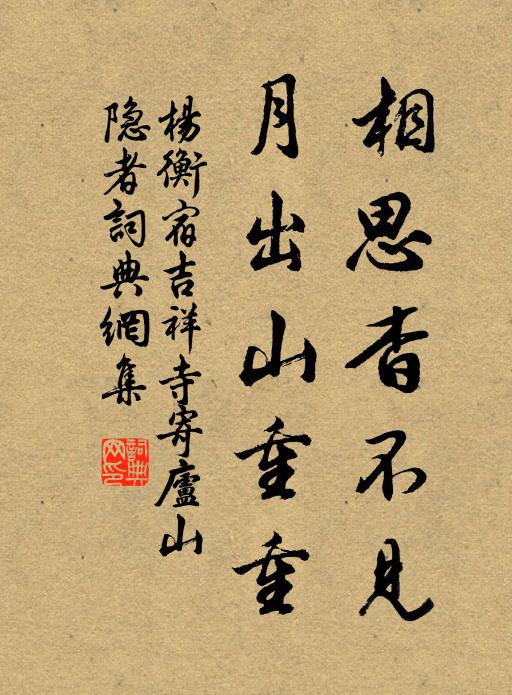 相思杳不見
月出山重重
楊衡宿吉祥寺寄廬山
隐者詞典網集
詞典网印